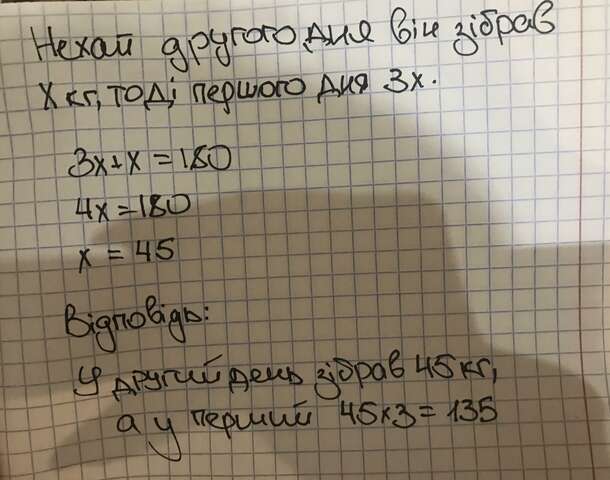 Нехай другого дня він зібрав
х кг, тоді першого дня 3х.
3х+х=180
4х=180
х = 45
Відповідь:
У другий день зібрав 45 кг,
а у перший 45×3=135